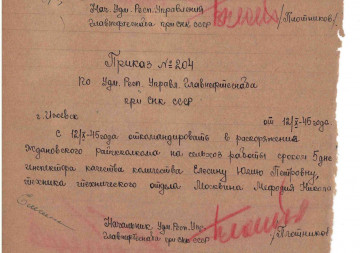 Нач. Удм. Респ. Управления
Главнефтеснаба при СНК СССР /Плотников/
Приказ № 204
по Удм. Респ. Управл. Главнефтеснаба
при СНК СССР
г. Ижевск от 12/X-45 года
С 12/X-45 года откомандировать в распоряжение
Ждановского райисполкома на сельхоз работы сроком 5 дней
инспектора качества Елесину Юлию Петровну,
техника технического отдела
Начальник Удм. Респ. Упр.
Главнефтеснаба при СНК СССР /Плотников/